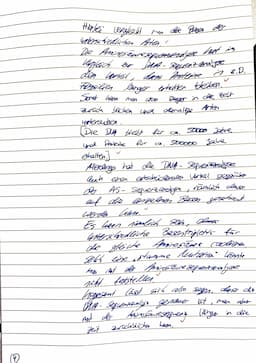 Hierbei vergleicht man die Basen der
unterschiedlichen Arten.
Die Aminosäuresequenzanalyse hat im
Vergleich zur DNA-Sequenzanalyse
den Vorteil, dass Proteine in z.B.
Fossilien länger erhalten bleiben.
Somit kann man also länger in die Zeit
zurück blicken und damalige Arten
untersuchen.
[Die DNA bleibt für ca. 50000 Jahre
und Proteine für ca. 500000 Jahre
erhalten]
Allerdings hat die DNA-Sequenzanalyse
auch einen entscheidenden Vorteil gegenüber
der AS-Sequenzanalyse, nämlich dass
auf die einzelnen Basen geschaut
werden kann.
Es kann nämlich sein, dass
unterschiedliche Basentripletts für
die gleiche Aminosäure codieren
solch eine "stumme Mutation" könnte
man mit der Aminosäuresequenzanalyse
nicht feststellen.
Insgesamt lässt sich also sagen, dass die
DNA-Sequenzanalyse genauer ist, man aber
mit der länger in die
Zeit zurückblicken kann.
(4)